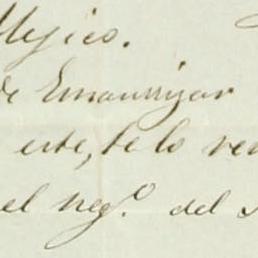 Mejico.
de Emanrizar
este, te lo ve
el neg.º del